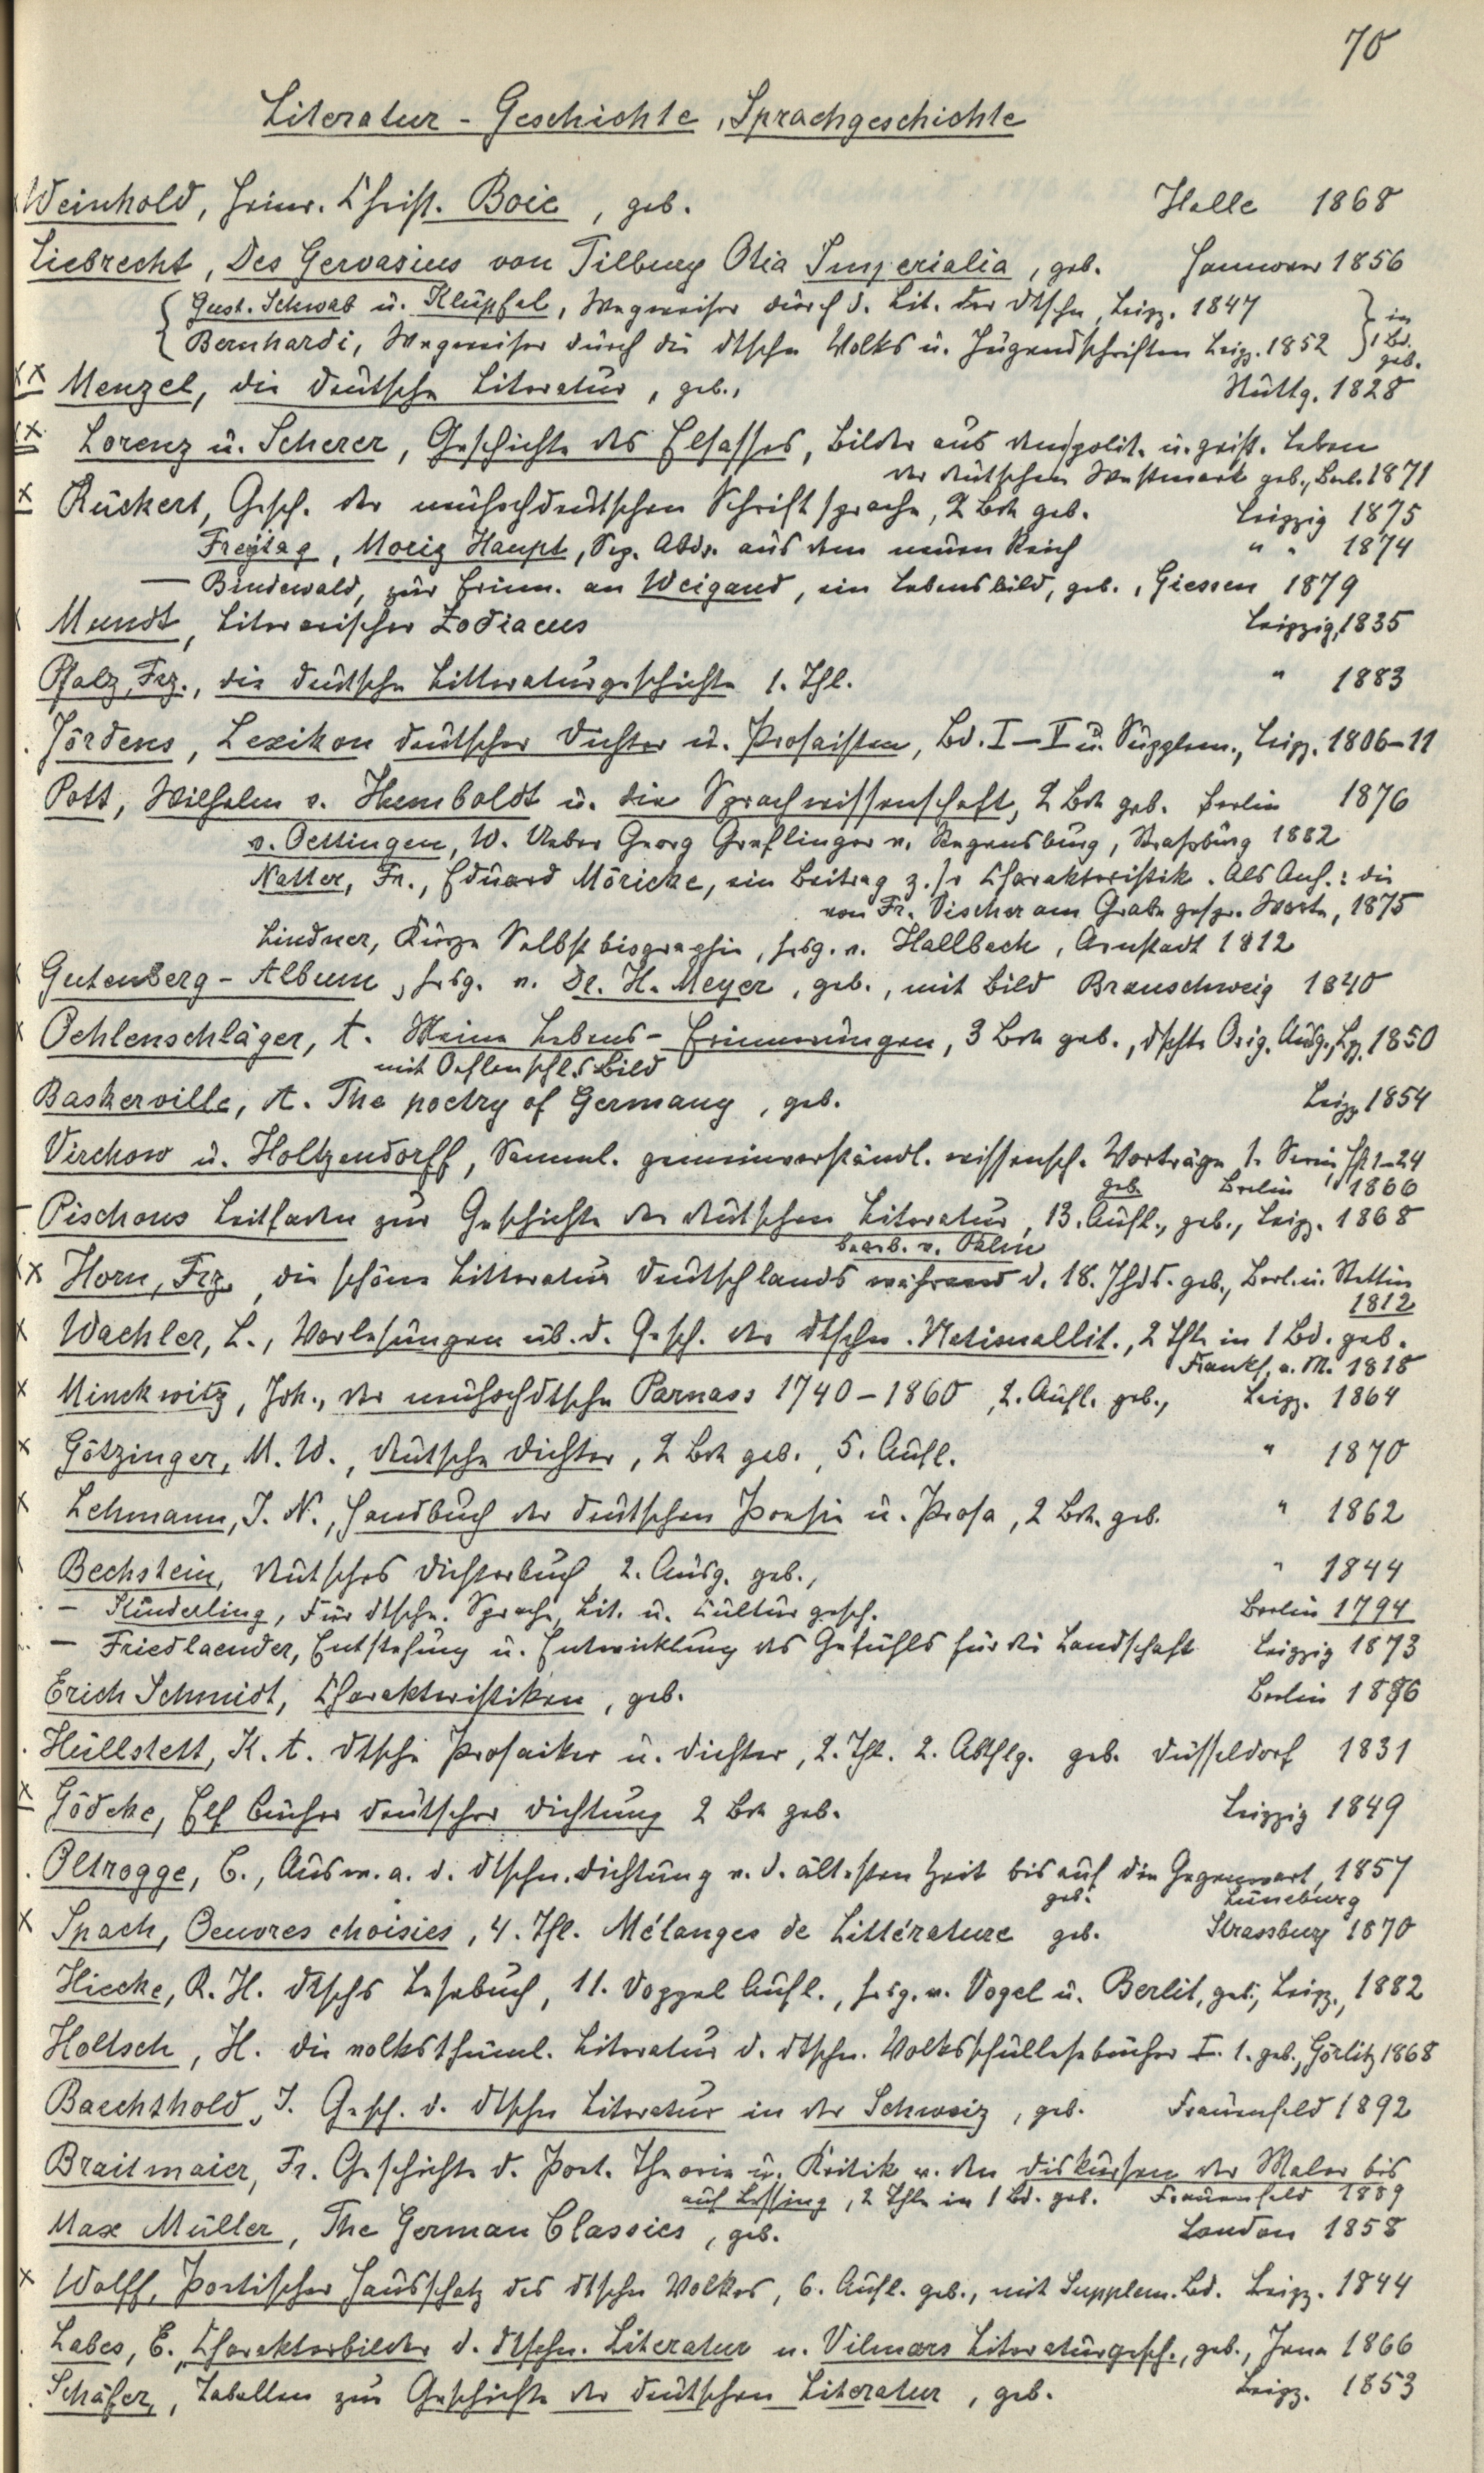 70
Literatur - Geschichte, Sprachgeschichte
x Weinhold, Heinr. Christ. Boie, geb. Halle 1868
Liebrecht, Des Gervasius von Tilbury Otia Imperialia, geb. Hannover 1856
Gust. Schwab u. Klüpfel, Wegweiser durch d. Lit. der Dtschn, Leipz. 1847 } in
Bernhardi, Wegweiser durch die dtschn Volks u. Jugendschriften Leipz. 1852 } 1 Bd. geb.
xx Menzel, die deutsche Literatur, geb., Stuttg. 1828
xx Lorenz u. Scherer, Geschichte des Elsasses, Bilder aus dem polit. u. geist. Leben
der deutschen Westmark geb., Berl. 1871
x Rückert, Gesch. der neuhochdeutschen Schriftsprache, 2 Bde geb. Leipzig 1875
Freytag, Moriz Haupt, Sep. Abdr. aus dem neuen Reich " " 1874
— Bindewald, zur Erinn. an Weigand, ein Lebensbild, geb., Giessen 1879
Mundt, Literarischer Zodiacus Leipzig, 1835
Pfalz, Frz., die deutsche Litteraturgeschichte 1. Thl. " 1883
Jördens, Lexikon deutscher Dichter u. Prosaisten, Bd. I—V u. Supplem., Leipz. 1806-11
Pott, Wilhelm v. Humboldt u. die Sprachwissenschaft, 2 Bde geb. Berlin 1876
v. Oettingen, W. Ueber Georg Greflinger v. Regensburg, Straßburg 1882
Notter, Fr., Eduard Möricke, ein Beitrag z. sr Charakteristik. Als Anh.: die
von Fr. Vischer am Grabe gespr. Worte, 1875
Lindner, Kurze Selbstbiographie, hrsg. v. Hallbach, Arnstadt 1812
Gutenberg - Album, hrsg. v. Dr. H. Meyer, geb., mit Bild Braunschweig 1840
x Oehlenschläger, A. Meine Lebens - Erinnerungen, 3 Bde geb., dtsche Orig. Ausg., Lpz. 1850
mit Oehlenschl.s Bild
Baskerville, A. The poetry of Germany, geb. Leipz 1854
Virchow u. Holtzendorff, Samml. gemeinverständl. wissensch. Vorträge 1. Serie, Hft 1-24
geb. Berlin 1866
— Pischons Leitfaden zur Geschichte der deutschen Literatur, 13. Aufl., geb., Leipz. 1868
bearb. v. Palm
xx Horn, Frz., die schöne Litteratur Deutschlands während d. 18. Jhds. geb., Berl. u. Stettin
1812
x Wachler, L., Vorlesungen üb. d. Gesch. der dtschn. Nationallit., 2 Thle in 1 Bd. geb.
Frankf. a. M. 1818
x Minckwitz, Joh., der neuhochdtsche Parnass 1740 - 1860, 2. Aufl. geb., Leipz. 1864
x Götzinger, M. W., deutsche Dichter, 2 Bde geb., 5. Aufl. " 1870
x Lehmann, J. N., Handbuch der deutschen Poesie u. Prosa, 2 Bde. geb. " 1862
Bechstein, deutsches Dichterbuch, 2. Ausg. geb., " 1844
— Kinderling, Für dtsche. Sprache, Lit. u. Culturgesch. Berlin 1794
— Friedlaender, Entstehung u. Entwicklung des Gefühls für die Landschaft Leipzig 1873
Erich Schmidt, Charakteristiken, geb. Berlin 1886
Hüllstett, K. A. dtsche Prosaiker u. Dichter, 2. Thl. 2. Abthlg. geb. Düsseldorf 1831
x Gödeke, Elf Bücher deutscher Dichtung 2 Bde geb. Leipzig 1849
Oltrogge, C., Ausw. a. d. dtschn. Dichtung v. d. ältesten Zeit bis auf die Gegenwart, 1857
geb. Lüneburg
x Spach, Oeuvres choisies, 4. Thl. Mélanges de Littérature geb. Strassburg 1870
Hiecke, R. H. dtschs Lesebuch, 11. Doppel Aufl., hrsg. v. Vogel u. Berlit, geb., Leipz., 1882
Holtsch, H. die volksthüml. Literatur d. dtschn. Volksschullesebücher I. 1. geb., Görlitz 1868
Baechthold, J. Gesch. d. dtschn Literatur in der Schweiz, geb. Frauenfeld 1892
Braitmaier, Fr. Geschichte d. Poet. Theorie u. Kritik v. den Diskursen der Maler bis
auf Lessing, 2 Thle in 1 Bd. geb. Frauenfeld 1889
Max Müller, The German Classics, geb. London 1858
x Wolff, Poetischer Hausschatz des dtschn Volkes, 6. Aufl. geb., mit Supplem. Bd. Leipz. 1844
Labes, E., Charakterbilder d. dtschn. Literatur n. Vilmars Literaturgesch., geb., Jena 1866
Schäfer, Tabellen zur Geschichte der deutschen Literatur, geb. Leipz. 1853